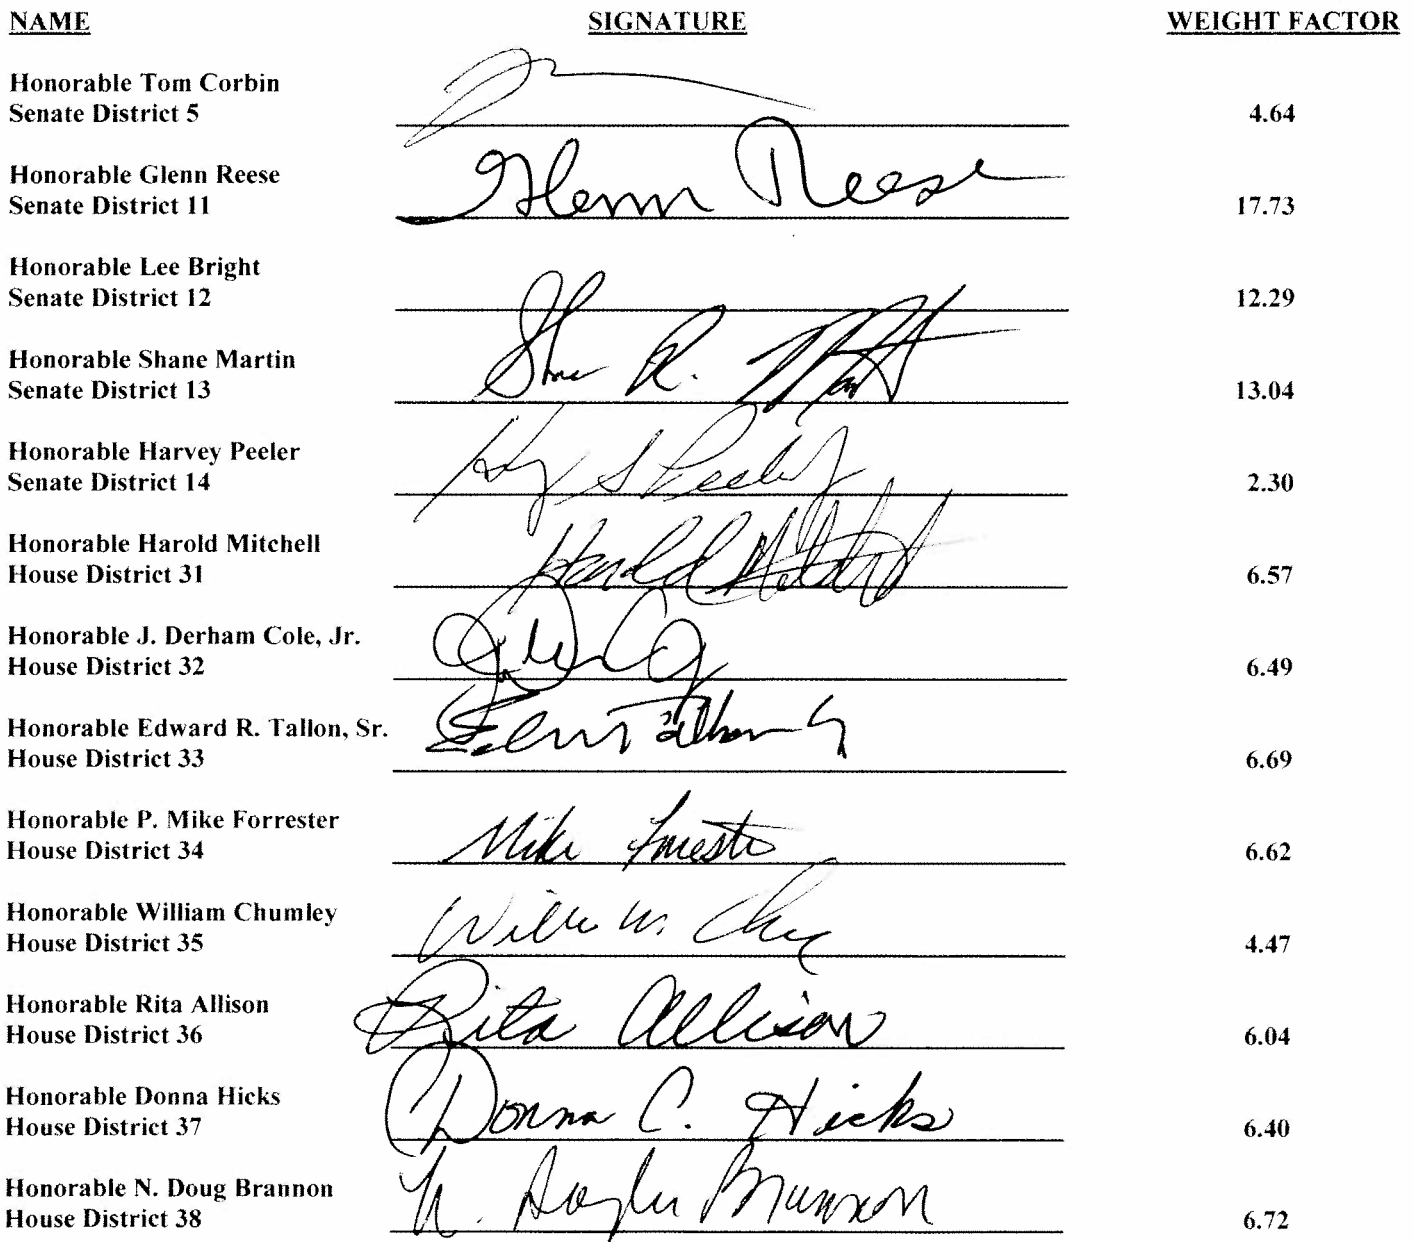 NAME SIGNATURE WEIGHT FACTOR
Honorable Tom Corbin
Senate District 5 4.64
Honorable Glenn Reese Glenn Reese
Senate District 11 17.73
Honorable Lee Bright
Senate District 12 12.29
Honorable Shane Martin Shane R. Martin
Senate District 13 13.04
Honorable Harvey Peeler
Senate District 14 S Peeler 2.30
Honorable Harold Mitchell
House District 31 Harold Mitchell 6.57
Honorable J. Derham Cole, Jr.
House District 32 6.49
Honorable Edward R. Tallon, Sr.
House District 33 6.69
Honorable P. Mike Forrester
House District 34 Mike Forrester 6.62
Honorable William Chumley
House District 35 4.47
Honorable Rita Allison
House District 36 Rita Allison 6.04
Honorable Donna Hicks
House District 37 Donna C. Hicks 6.40
Honorable N. Doug Brannon
House District 38 N. Brannon 6.72